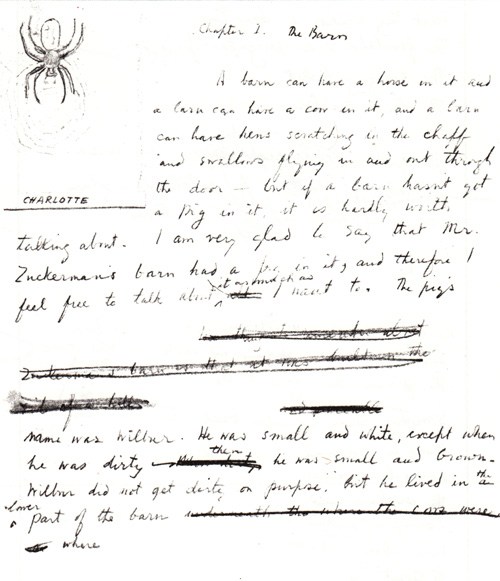 Chapter I. The Barn
A barn can have a horse in it and
a barn can have a cow in it, and a barn
can have hens scratching in the chaff
and swallows flying in and out through
the door — but if a barn hasn't got
a pig in it, it is hardly worth
CHARLOTTE
talking about. I am very glad to say that Mr.
Zuckerman's barn had a pig in it, and therefore I
feel free to talk about it as much as I want to. The pig's
Zuckerman's barn is that it was built on the
name was Wilbur. He was small and white, except when
he was dirty then he was small and brown.
Wilbur did not get dirty on purpose, but he lived in the
lower part of the barn underneath the where the cows were
where